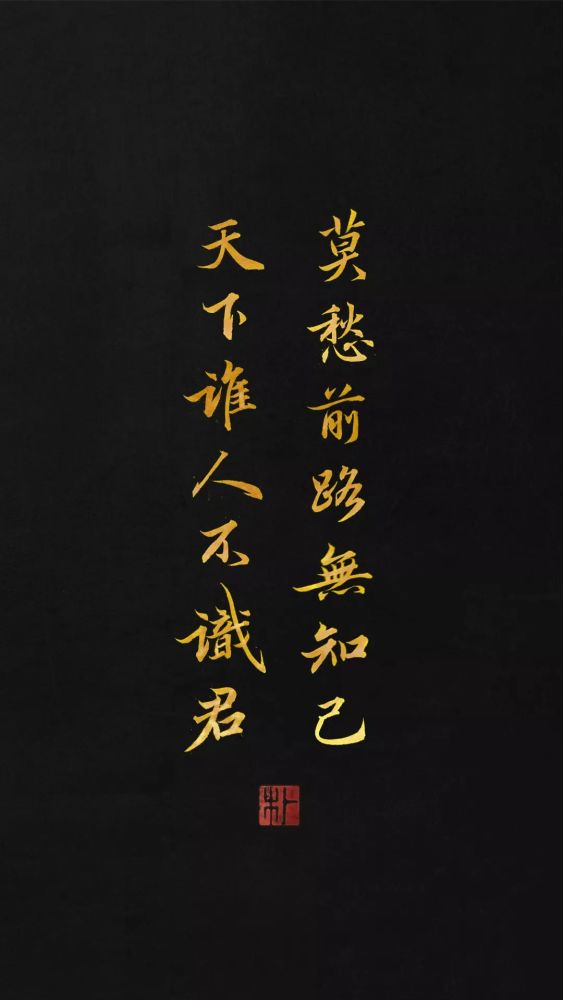 莫愁前路無知己
天下谁人不識君
朴